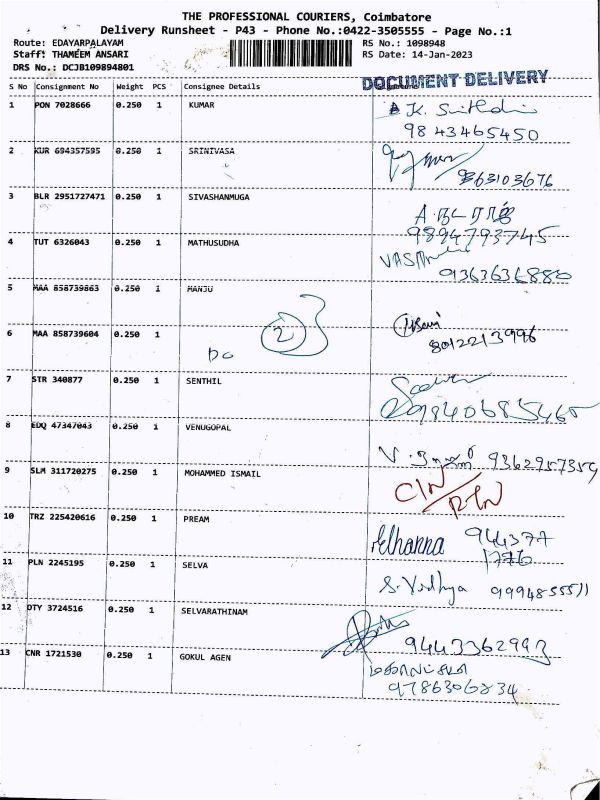 THE PROFESSIONAL COURIERS, Coimbatore
Delivery Runsheet - P43 - Phone No.:0422-3505555 - Page No.:1
Route: EDAYARPALAYAM RS No.: 1098948
Staff: THAMEEM ANSARI RS Date: 14-Jan-2023
DRS No.: DCJB109894801
DOCUMENT DELIVERY
S No Consignment No Weight PCS Consignee Details
1 PON 7028666 0.250 1 KUMAR
9843465450
2 KUR 694357595 0.250 1 SRINIVASA
9363103676
3 BLR 2951727471 0.250 1 SIVASHANMUGA
9894793745
4 TUT 6326043 0.250 1 MATHUSUDHA
9363636880
5 MAA 858739863 0.250 1 MANJU
6 MAA 858739604 0.250 1
Do 2 8012213996
7 STR 340877 0.250 1 SENTHIL
9840685465
8 EDQ 47347043 0.250 1 VENUGOPAL
9362957359
9 SLM 311720275 0.250 1 MOHAMMED ISMAIL
C/N
RTN
10 TRZ 225420616 0.250 1 PREAM
944377
1776
11 PLN 2245195 0.250 1 SELVA
S. Vidhya 9994855511
12 DTY 3724516 0.250 1 SELVARATHINAM
9443362993
13 CNR 1721530 0.250 1 GOKUL AGEN
9786306234